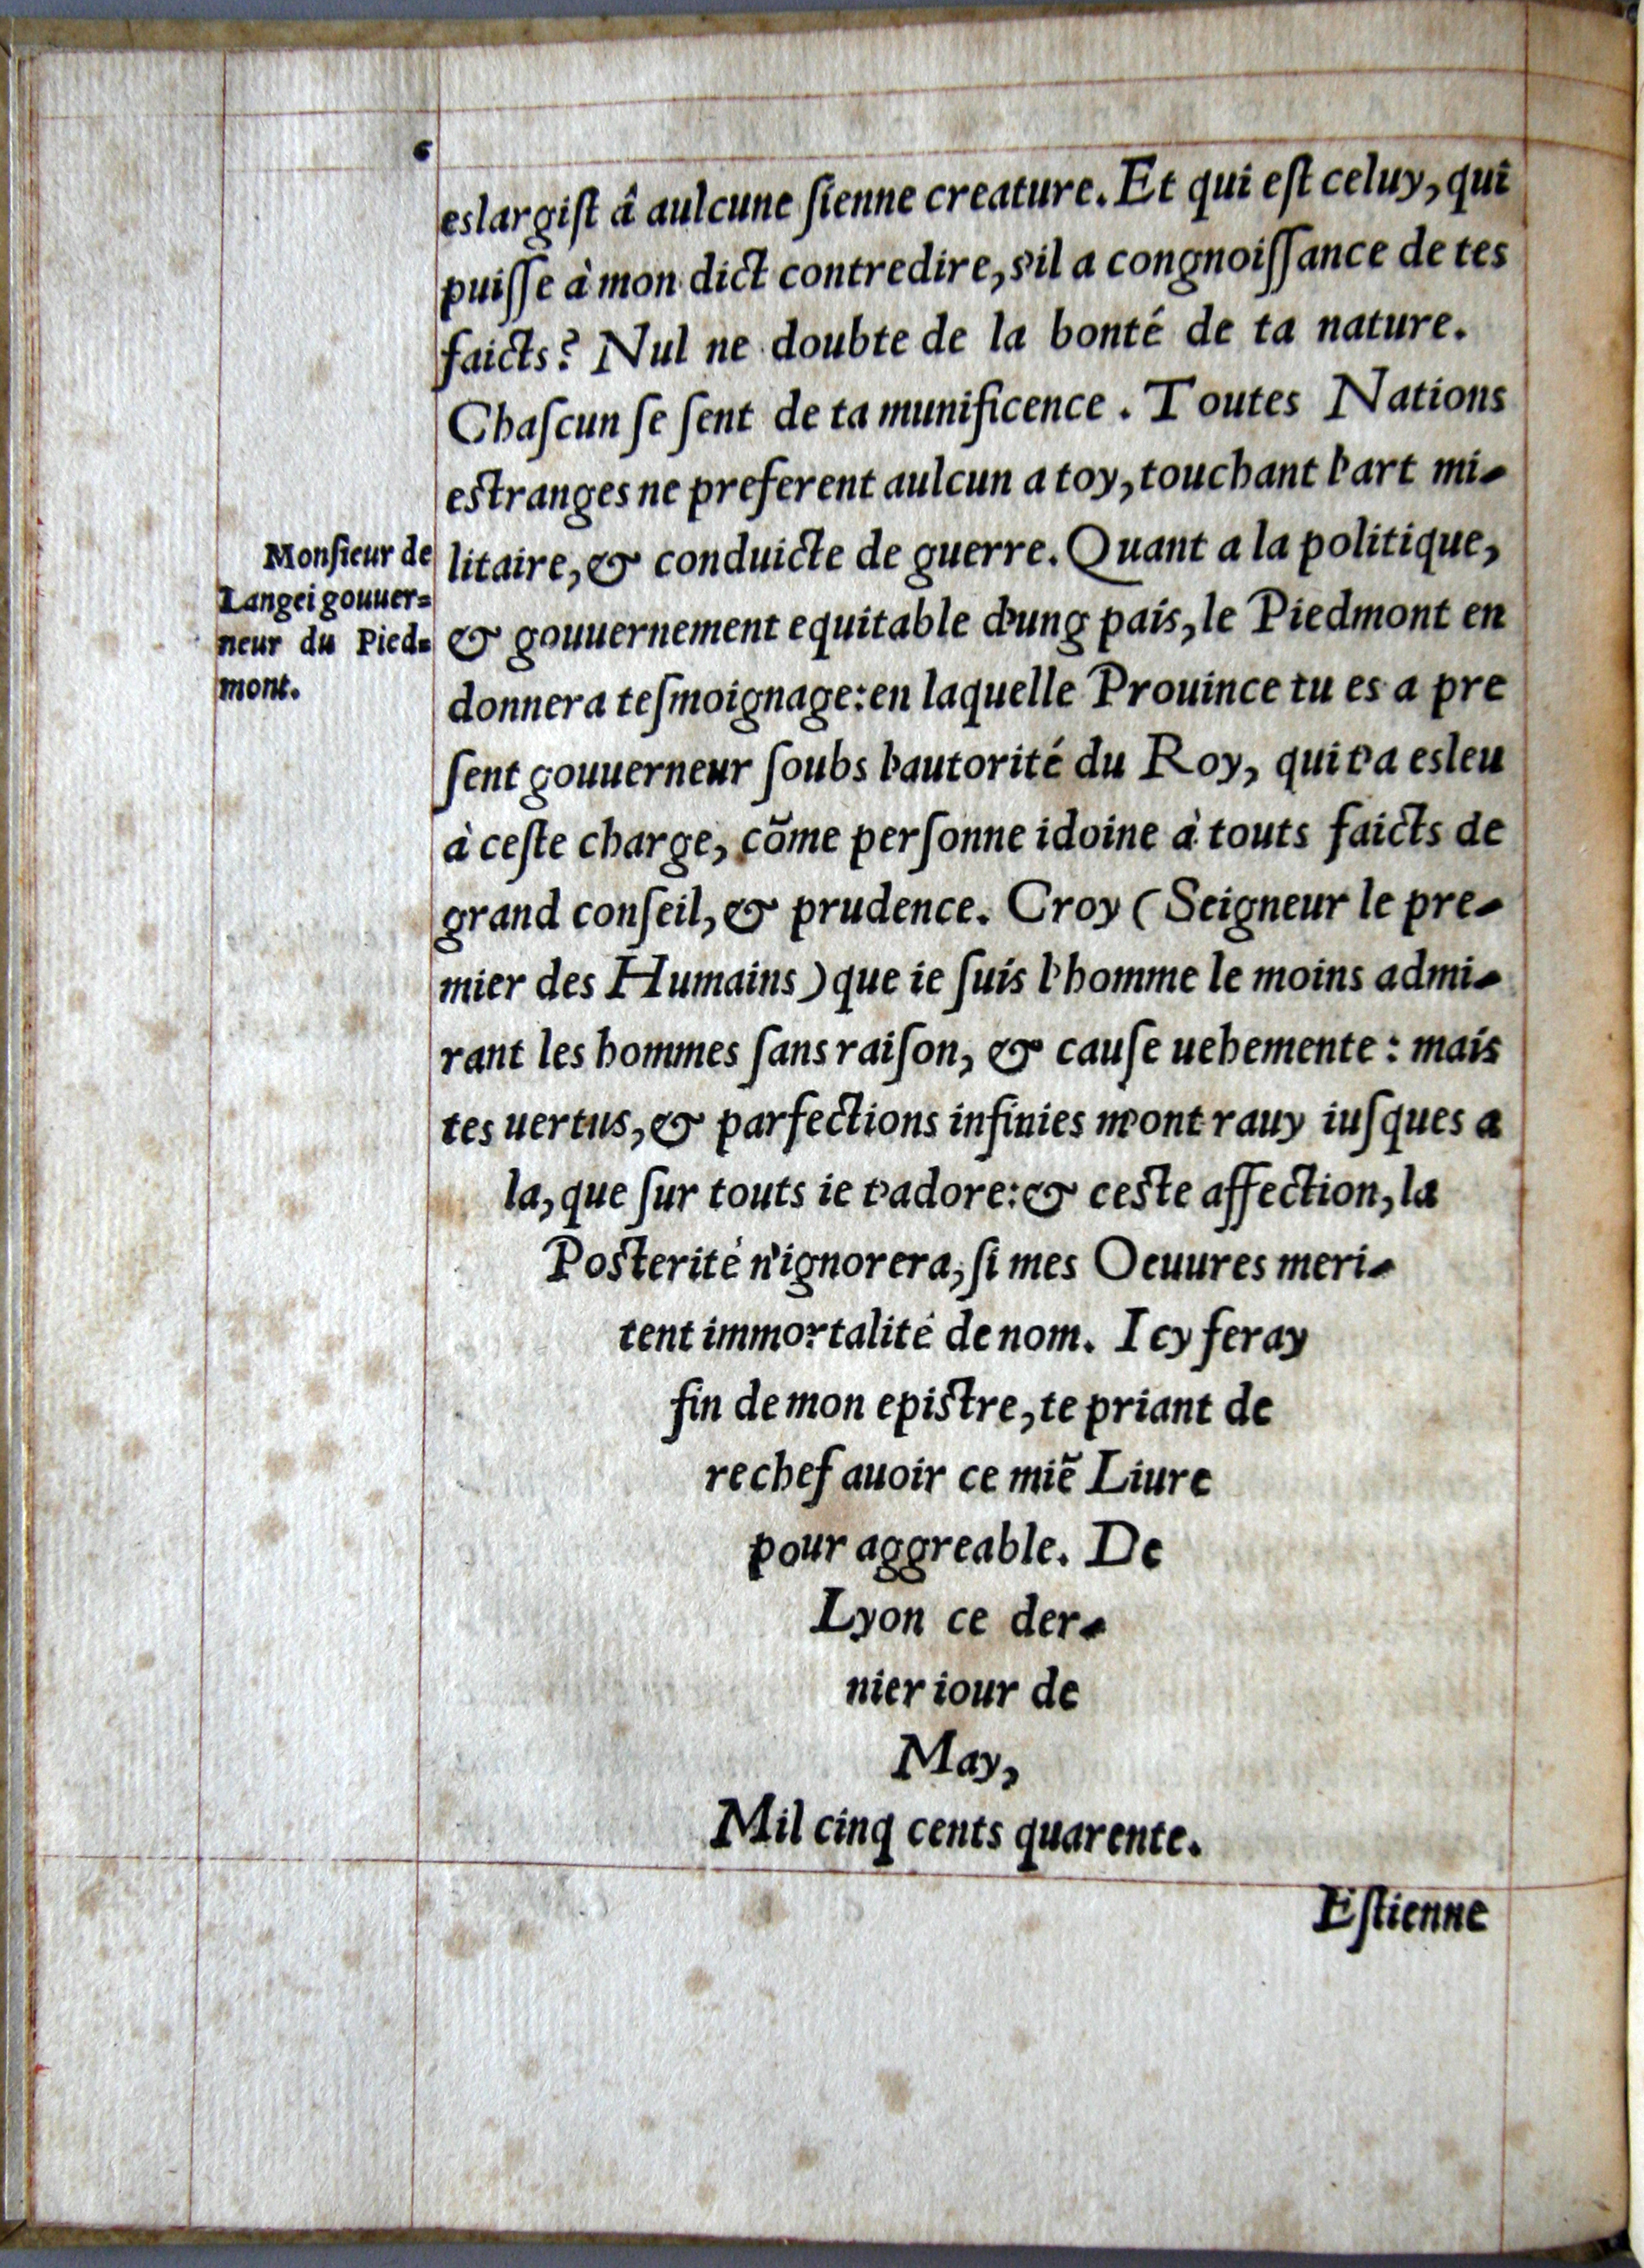 6
eslargiſt â aulcune ſienne creature. Et qui eſt celuy, qui
puiſſe à mon dict contredire, s'il a congnoiſſance de tes
faicts? Nul ne doubte de la bonté de ta nature.
Chaſcun ſe ſent de ta munificence. Toutes Nations
estranges ne preferent aulcun a toy, touchant l'art mi-
litaire, & conduicte de guerre. Quant a la politique,
& gouuernement equitable d'ung païs, le Piedmont en
donnera teſmoignage: en laquelle Prouince tu es a pre
ſent gouuerneur ſoubs l'autorité du Roy, qui t'a esleu
à ceſte charge, cõme perſonne idoine à touts faicts de
grand conſeil, & prudence. Croy (Seigneur le pre-
mier des Humains) que ie ſuis l'homme le moins admi-
rant les hommes ſans raiſon, & cauſe uehemente: mais
tes uertus, & parfections infinies m'ont rauy iuſques a
la, que ſur touts ie t'adore: & ceste affection, la
Posterité n'ignorera, ſi mes Oeuures meri-
tent immortalité de nom. Icy feray
fin de mon epistre, te priant de
rechef auoir ce miẽ Liure
pour aggreable. De
Lyon ce der-
nier iour de
May,
Mil cinq cents quarente.
Monſieur de
Langei gouuer=
neur du Pied=
mont.
Eſtienne